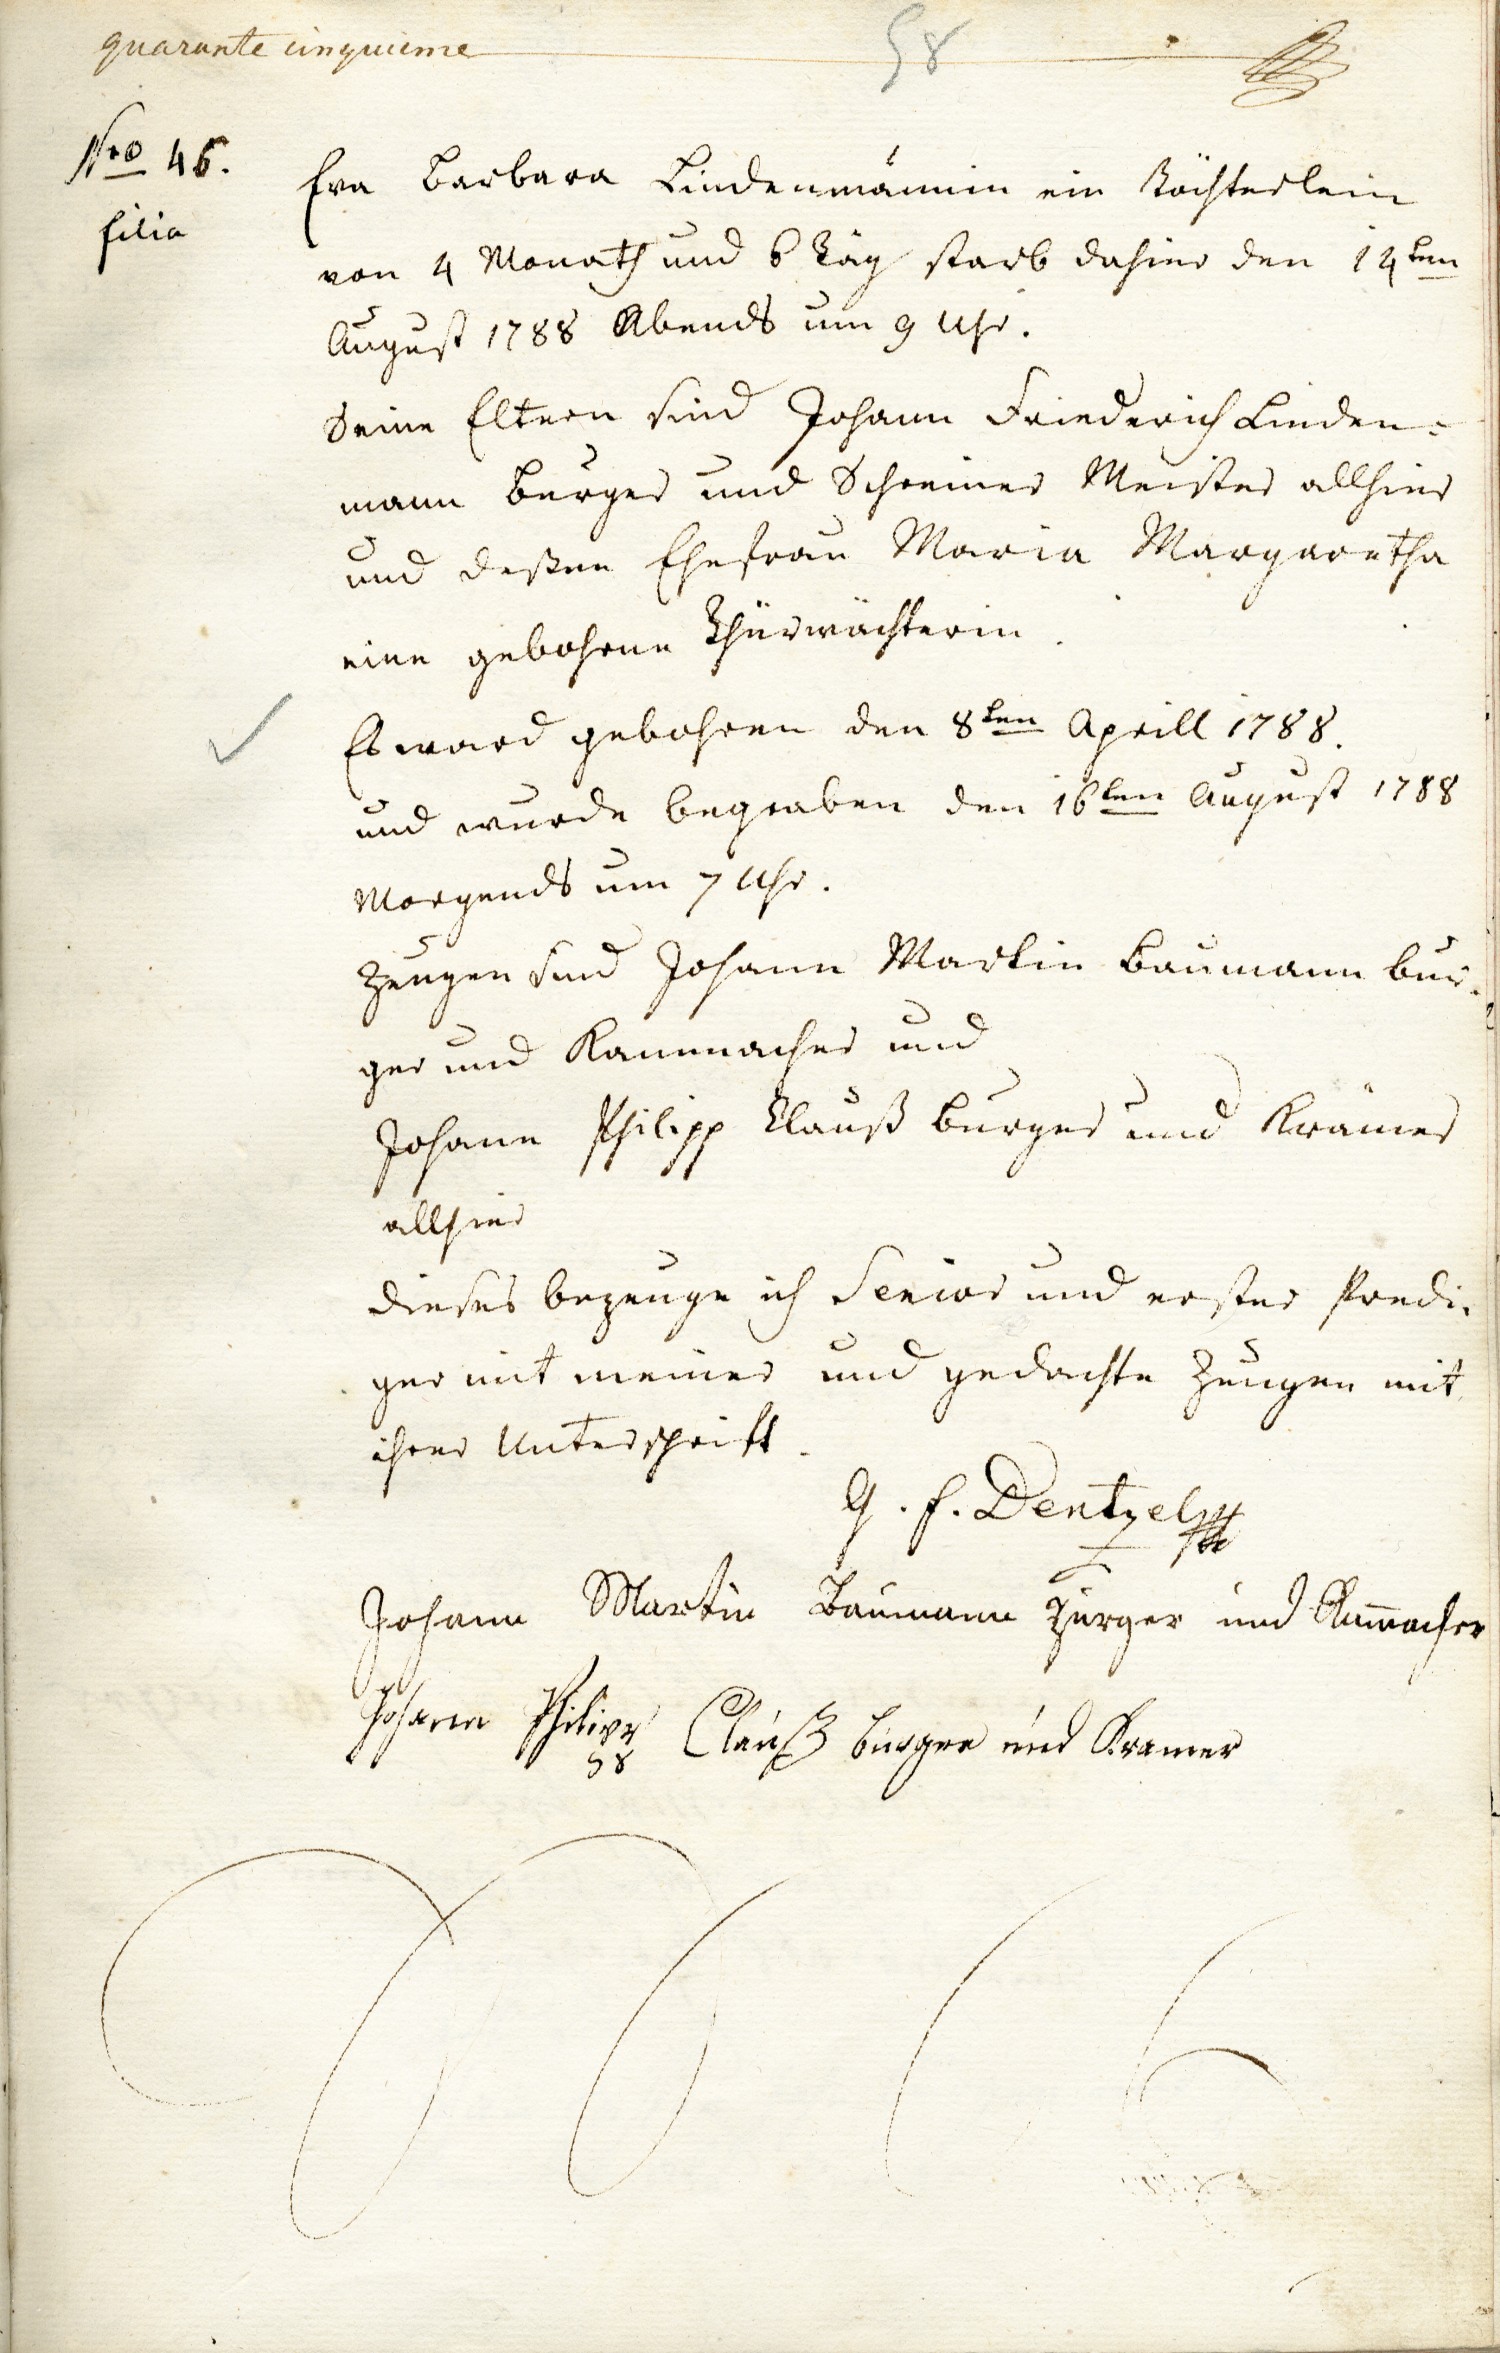 quarante cinquieme
58
Nro 46.
filia
Eva Barbara Lindenmännin ein Töchterlein
von 4 Monath und 6 Täg starb dahier den 14ten
August 1788 Abends um 9 Uhr.
Seine Eltern sind Johann Friederich Linden=
mann burger und Schreiner Meister allhier
und deßen Ehefrau Maria Margaretha
eine gebohrne Thürwächterin.
Es ward gebohren den 8ten Aprill 1788.
und wurde begraben den 16ten August 1788
Morgends um 7 Uhr.
Zeugen sind Johann Martin Baumann bur-
ger und Kammacher und
Johann Philipp Clauß burger und Krämer
allhier
dieses bezeuge ich Senior und erster Predi-
ger mit meiner und gedachte Zeugen mit
ihrer Unterschrift.
G. F. Dentzel
Johann Martin Baumann burger und Kam̄acher
Johann Philipp Clauß burger und Kramer
58